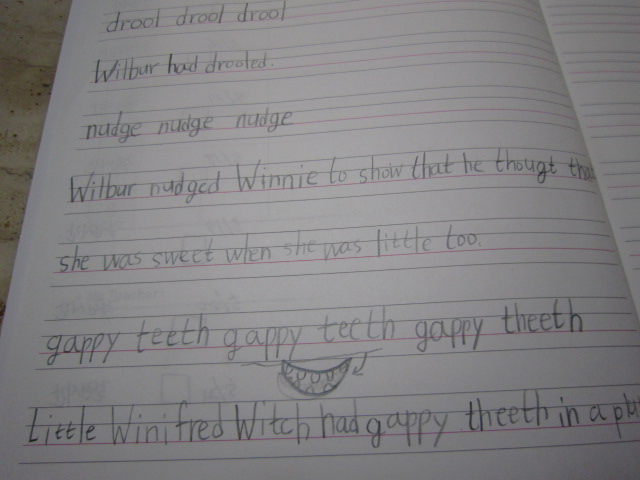 drool drool drool
Wilbur had drooled.
nudge nudge nudge
Wilbur nudged Winnie to show that he thougt
she was sweet when she was little too.
gappy teeth gappy teeth gappy theeth
Little Winifred Witch had gappy theeth in a